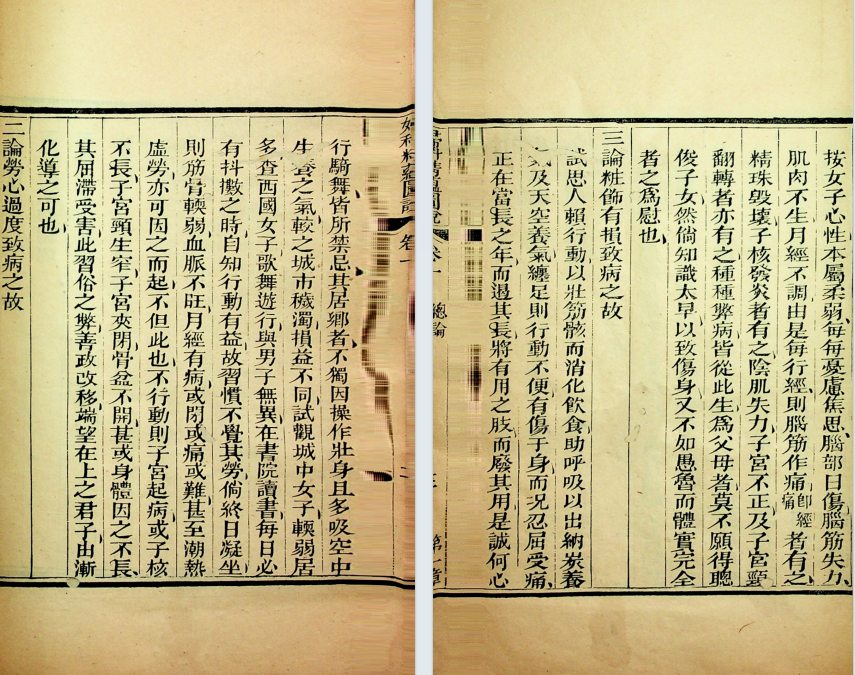 婦科精蘊圖說 卷一 二
行騎舞皆所禁忌其居鄉者不獨因操作壯身且多吸空中
生養之氣較之城市穢濁損益不同試觀城中女子輭弱居
多查西國女子歌舞遊行與男子無異在書院讀書每日必
有抖擻之時自知行動有益故習慣不覺其勞倘終日凝坐
則筋骨輭弱血脈不旺月經有病或閉或痛或難甚至潮熱
虛勞亦可因之而起不但此也不行動則子宮起病或子核
不長子宮頸生窄子宮夾閉骨盆不開甚或身體因之不長
其屈滯受害此習俗之弊善政改移端望在上之君子由漸
化導之可也
二論勞心過度致病之故
按女子心性本屬柔弱每每憂慮焦思腦部日傷腦筋失力
肌肉不生月經不調由是每行經則腦筋作痛卽經痛者有之
精珠毀壞子核發炎者有之陰肌失力子宮不正及子宮頸
翻轉者亦有之種種弊病皆從此生爲父母者莫不願得聰
俊子女然倘知識太早以致傷身又不如愚魯而體實完全
者之爲慰也
三論粧飾有損致病之故
試思人賴行動以壯筋骸而消化飲食助呼吸以出納炭養
氣及天空養氣纏足則行動不便有傷于身而況忍屈受痛
正在當長之年而遏其長將有用之肢而廢其用是誠何心
總論 第一章